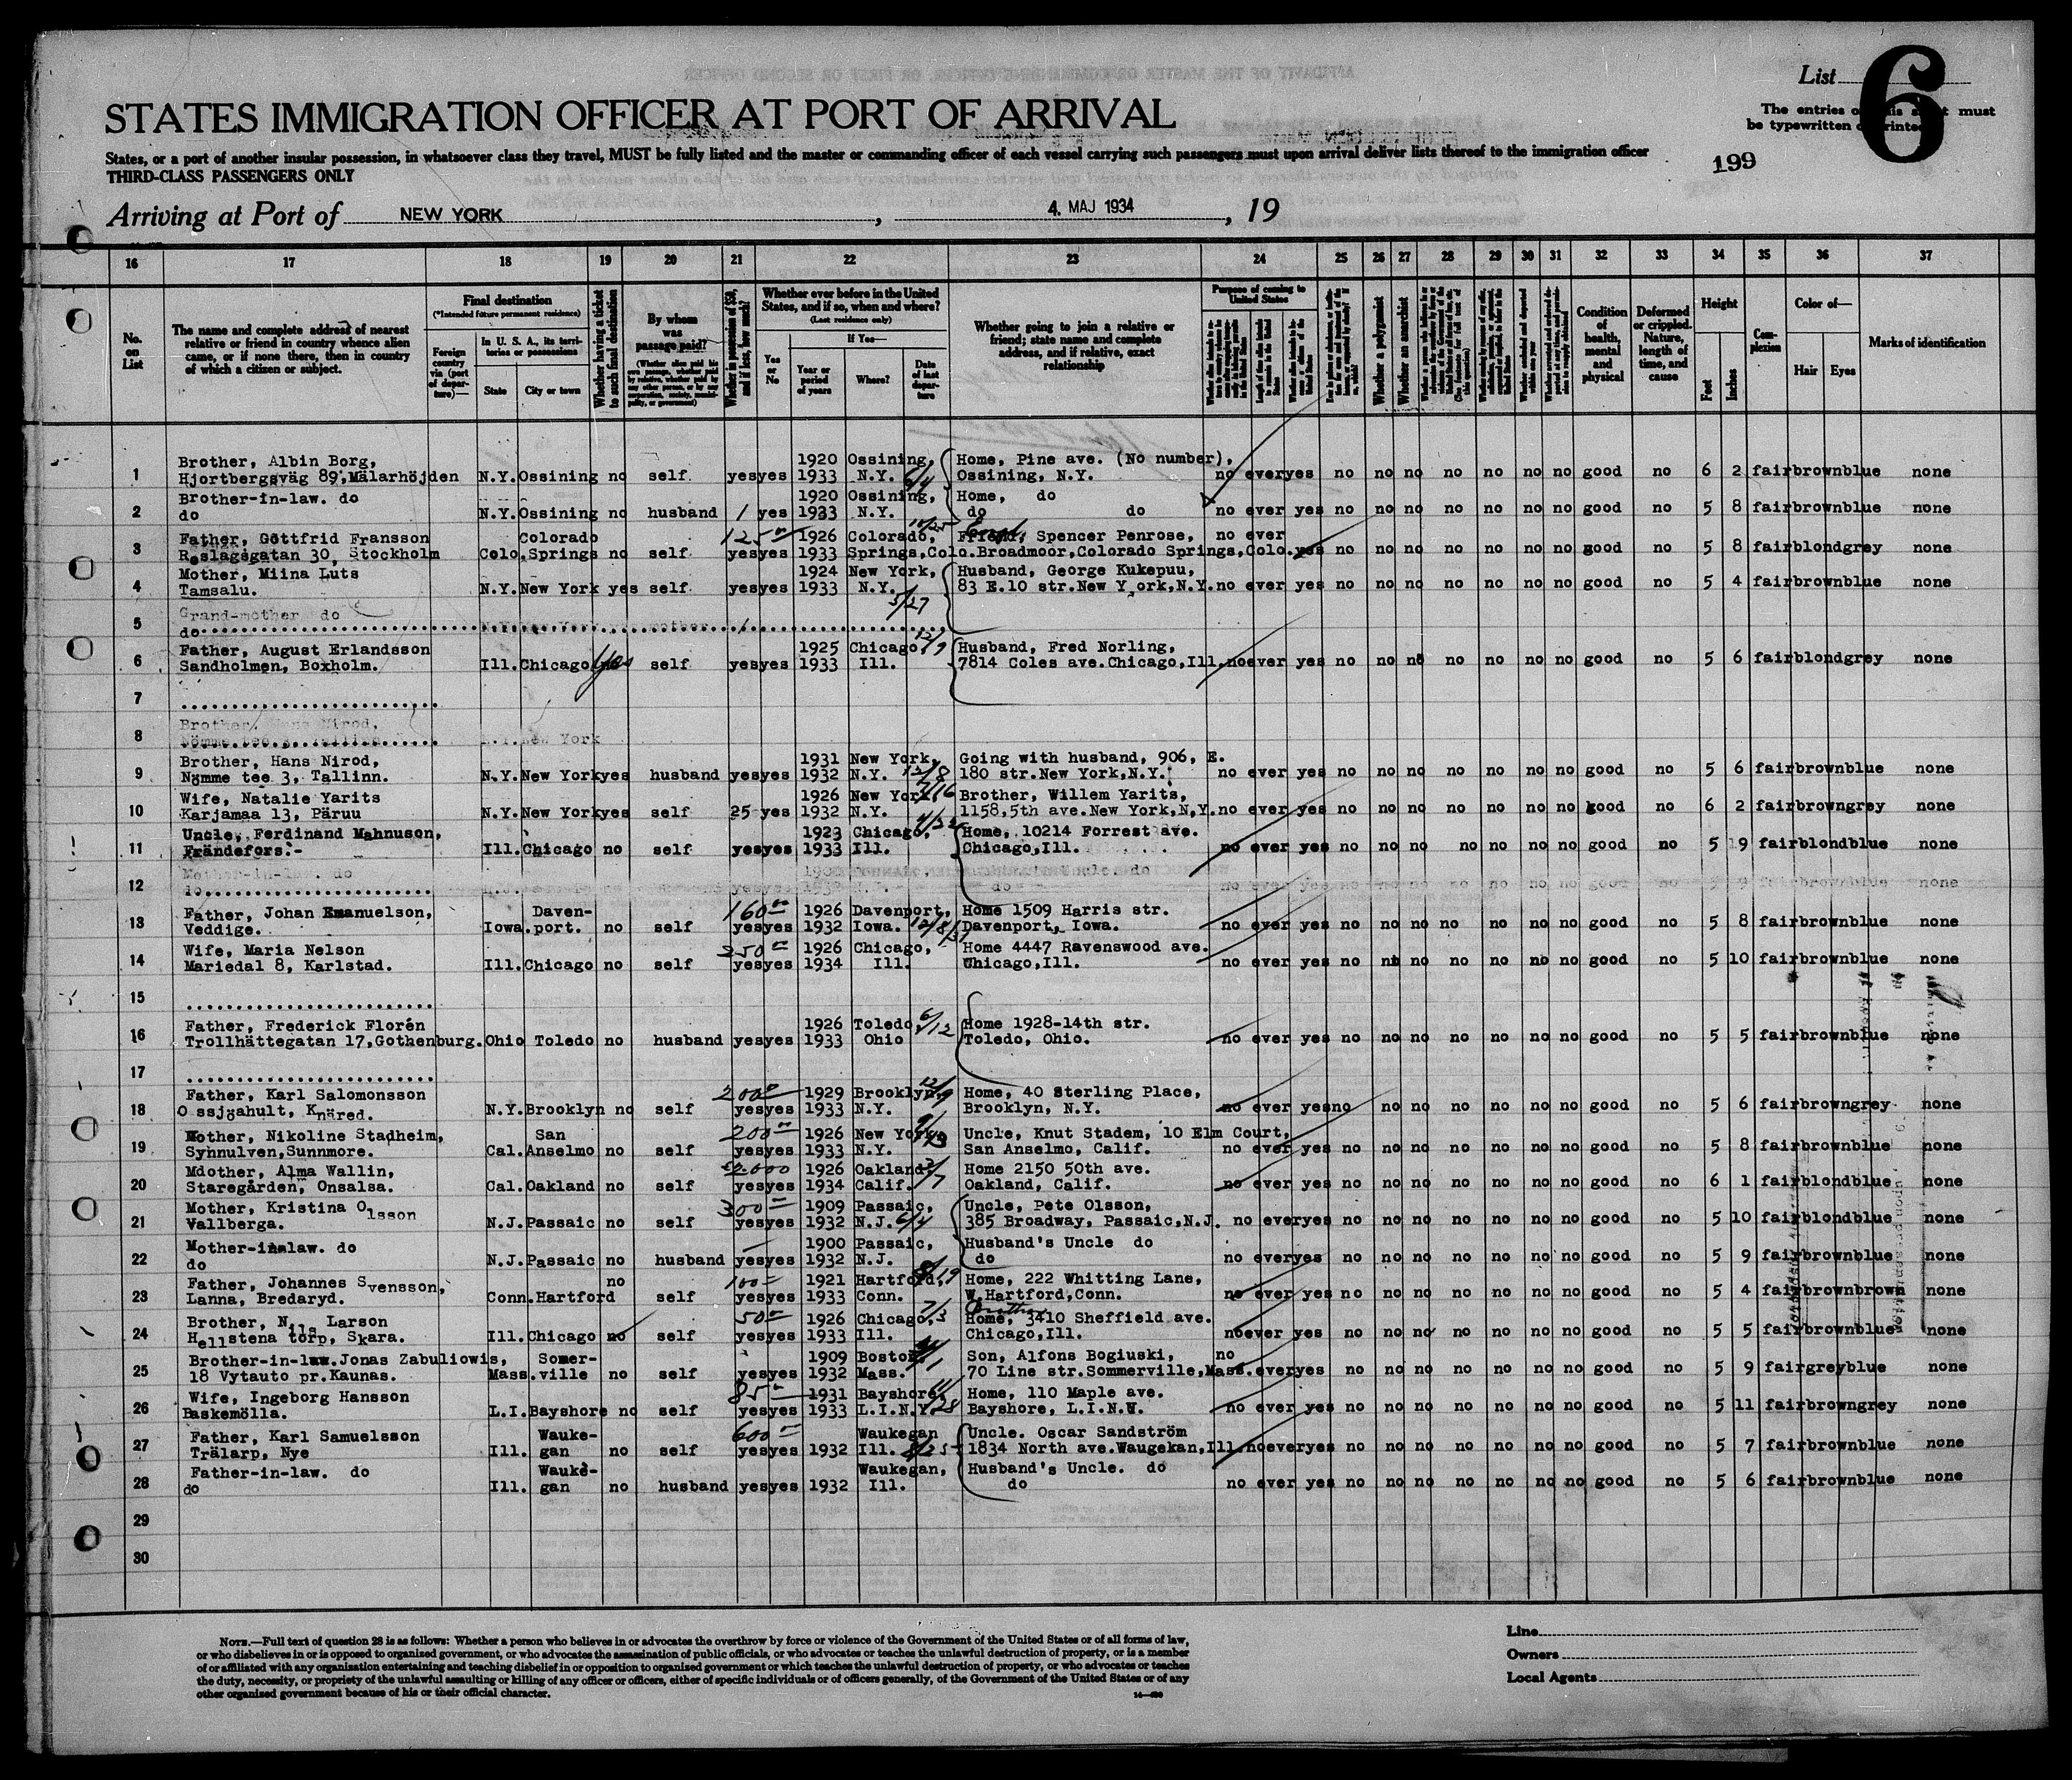 List 6
The entries on this sheet must
be typewritten or printed
STATES IMMIGRATION OFFICER AT PORT OF ARRIVAL
States, or a port of another insular possession, in whatsoever class they travel, MUST be fully listed and the master or commanding officer of each vessel carrying such passengers must upon arrival deliver lists thereof to the immigration officer
199
THIRD-CLASS PASSENGERS ONLY
Arriving at Port of NEW YORK, 4. MAJ 1934, 19
16 17 18 19 20 21 22 23 24 25 26 27 28 29 30 31 32 33 34 35 36 37
No. on List
The name and complete address of nearest relative or friend in country whence alien came, or if none there, then in country of which a citizen or subject.
Final destination
(*Intended future permanent residence)
Foreign country via (port of departure)—
In U. S. A., its territories or possessions
State City or town
Whether having a ticket to such final destination
By whom was passage paid?
Whether in possession of $50, and if less, how much?
Whether ever before in the United States, and if so, when and where?
(Last residence only)
Yes or No
If Yes—
Year or period of years Where? Date of last departure
Whether going to join a relative or friend; state name and complete address, and if relative, exact relationship
Purpose of coming to United States
Whether a polygamist
Whether an anarchist
Condition of health, mental and physical
Deformed or crippled. Nature, length of time, and cause
Height
Feet Inches
Complexion
Color of—
Hair Eyes
Marks of identification
Brother, Albin Borg, 1920 Ossining, Home, Pine ave. (No number),
1 Hjortbergsväg 89, Mälarhöjden N.Y. Ossining no self yes yes 1933 N.Y. 6/4 Ossining, N.Y. no ever yes no no no no no no no good no 6 2 fair brown blue none
Brother-in-law. do 1920 Ossining, Home, do
2 do N.Y. Ossining no husband 1 yes 1933 N.Y. do do no ever yes no no no no no no no good no 5 8 fair brown blue none
Father, Göttfrid Fransson Colorado 125 1926 Colorado, 10/25 Spencer Penrose, no ever
3 Roslagsgatan 30, Stockholm Colo. Springs no self yes yes 1933 Springs, Colo. Broadmoor, Colorado Springs, Colo. yes no no no no no no no good no 5 8 fair blond grey none
Mother, Miina Luts 1924 New York, Husband, George Kukepuu,
4 Tamsalu. N.Y. New York yes self yes yes 1933 N.Y. 83 E.10 str. New York, N.Y. no ever yes no no no no no no no good no 5 4 fair brown blue none
Grand-mother do 5/27
5 do
Father, August Erlandsson 1925 Chicago 12/9 Husband, Fred Norling,
6 Sandholmen, Boxholm. Ill. Chicago Yes self yes yes 1933 Ill. 7814 Coles ave. Chicago, Ill. no ever yes no no no no no no no good no 5 6 fair blond grey none
7
Brother, Hans Nirod,
8 Nömme tee 3, Tallinn N.Y. New York
Brother, Hans Nirod, 1931 New York, Going with husband, 906, E.
9 Nömme tee 3, Tallinn. N.Y. New York yes husband yes yes 1932 N.Y. 12/8 180 str. New York, N.Y. no ever yes no no no no no no no good no 5 6 fair brown blue none
Wife, Natalie Yarits 1926 New York, Brother, Willem Yarits,
10 Karjamaa 13, Päruu N.Y. New York yes self 25 yes 1932 N.Y. 1158, 5th ave. New York, N.Y. no ever yes no no no no no no no good no 6 2 fair brown grey none
Uncle, Ferdinand Mahnuson, 1923 Chicago, Home, 10214 Forrest ave.
11 Frändefors.- Ill. Chicago no self yes yes 1933 Ill. Chicago, Ill. no ever yes no no no no no no no good no 5 9 fair blond blue none
Mother-in-law. do
12 do
Father, Johan Emanuelson, Daven- 160 1926 Davenport, Home 1509 Harris str.
13 Veddige. Iowa. port. no self yes yes 1932 Iowa. Davenport, Iowa. no ever yes no no no no no no no good no 5 8 fair brown blue none
Wife, Maria Nelson 250 1926 Chicago, Home 4447 Ravenswood ave.
14 Mariedal 8, Karlstad. Ill. Chicago no self yes yes 1934 Ill. Chicago, Ill. no ever yes no no no no no no no good no 5 10 fair brown blue none
15
Father, Frederick Florén 1926 Toledo 6/12 Home 1928-14th str.
16 Trollhättegatan 17, Gothenburg. Ohio Toledo no husband yes yes 1933 Ohio Toledo, Ohio. no ever yes no no no no no no no good no 5 5 fair brown blue none
17
Father, Karl Salomonsson 200 1929 Brooklyn, Home, 40 Sterling Place,
18 Ossjöahult, Knäred. N.Y. Brooklyn no self yes yes 1933 N.Y. Brooklyn, N.Y. no ever yes no no no no no no no good no 5 6 fair brown grey none
Mother, Nikoline Stadheim, San 200 1926 New York, Uncle, Knut Stadem, 10 Elm Court,
19 Synnulven, Sunnmore. Cal. Anselmo no self yes yes 1933 N.Y. San Anselmo, Calif. no ever yes no no no no no no no good no 5 8 fair brown blue none
Mdother, Alma Wallin, 1926 Oakland Home 2150 50th ave.
20 Staregården, Onsalsa. Cal. Oakland no self yes yes 1934 Calif. Oakland, Calif. no ever yes no no no no no no no good no 6 1 fair blond blue none
Mother, Kristina Olsson 300 1909 Passaic, Uncle, Pete Olsson,
21 Vallberga. N.J. Passaic no self yes yes 1932 N.J. 6/4 385 Broadway, Passaic, N.J. no ever yes no no no no no no no good no 5 10 fair blond blue none
Mother-inalaw. do 1900 Passaic, Husband's Uncle do
22 do N.J. Passaic no husband yes yes 1932 N.J. do no ever yes no no no no no no no good no 5 9 fair brown blue none
Father, Johannes Svensson, no 100 1921 Hartford, Home, 222 Whitting Lane,
23 Lanna, Bredaryd. Conn. Hartford self yes yes 1933 Conn. W. Hartford, Conn. no ever yes no no no no no no no good no 5 4 fair brown brown none
Brother, Nils Larson 50 1926 Chicago, 7/3 Brother Home, 3410 Sheffield ave.
24 Hellstena torp, Skara. Ill. Chicago no self yes yes 1933 Ill. Chicago, Ill. no ever yes no no no no no no no good no 5 5 fair brown blue none
Brother-in-law. Jonas Zabuliowis, Somer- 1909 Boston Son, Alfons Bogiuski, no
25 18 Vytauto pr. Kaunas. Mass. ville no self yes yes 1932 Mass. 70 Line str. Sommerville, Mass. ever yes no no no no no no no good no 5 9 fair grey blue none
Wife, Ingeborg Hansson 85 1931 Bayshore, 11/28 Home, 110 Maple ave.
26 Baskemölla. L.I. Bayshore no self yes yes 1933 L.I.N.Y. Bayshore, L.I.N.Y. no ever yes no no no no no no no good no 5 11 fair brown grey none
Father, Karl Samuelsson Wauke- 600 Waukegan Uncle. Oscar Sandström
27 Trälarp, Nye Ill. gan no self yes yes 1932 Ill. 1834 North ave. Waugekan, Ill. no ever yes no no no no no no no good no 5 7 fair brown blue none
Father-in-law. do Wauke- Waukegan, Husband's Uncle. do
28 do Ill. gan no husband yes yes 1932 Ill. do no ever yes no no no no no no no good no 5 6 fair brown blue none
29
30
NOTE.—Full text of question 28 is as follows: Whether a person who believes in or advocates the overthrow by force or violence of the Government of the United States or of all forms of law,
or who disbelieves in or is opposed to organized government, or who advocates the assassination of public officials, or who advocates or teaches the unlawful destruction of property, or is a member
of or affiliated with any organization entertaining and teaching disbelief in or opposition to organized government or which teaches the unlawful destruction of property, or who advocates or teaches
the duty, necessity, or propriety of the unlawful assaulting or killing of any officer or officers, either of specific individuals or of officers generally, of the Government of the United States or of any
other organized government because of his or their official character.
Line
Owners
Local Agents